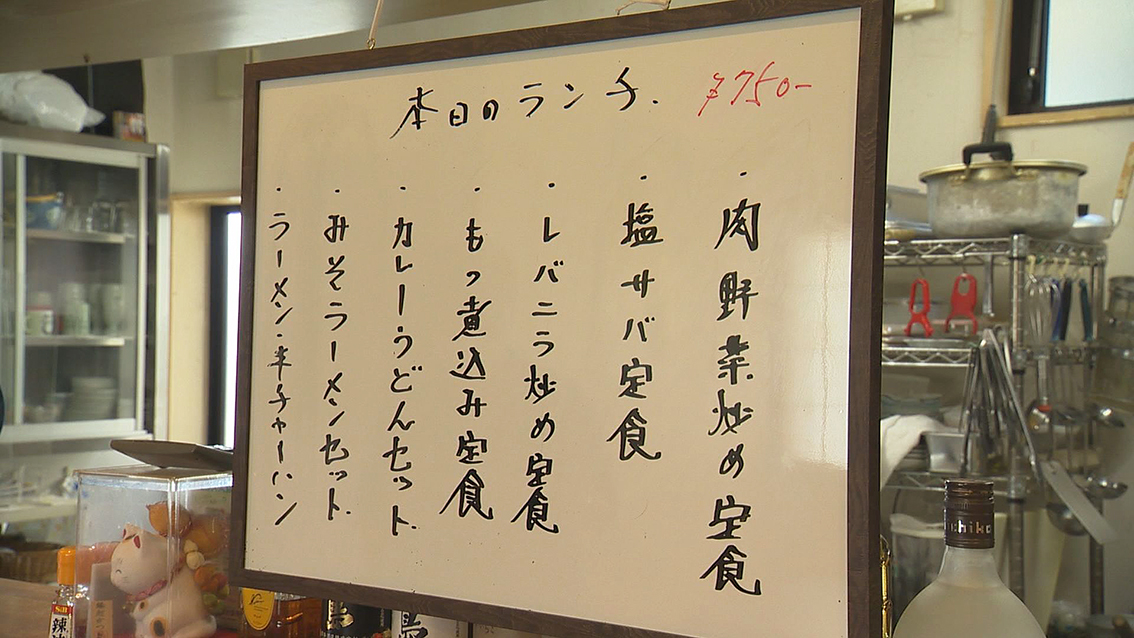 本日のランチ. ¥750-
・肉野菜炒め定食
・塩サバ定食
・レバニラ炒め定食
・もつ煮込み定食
・カレーうどんセット
・みそラーメンセット
・ラーメン・半チャーハン
chiko
S&B
辣